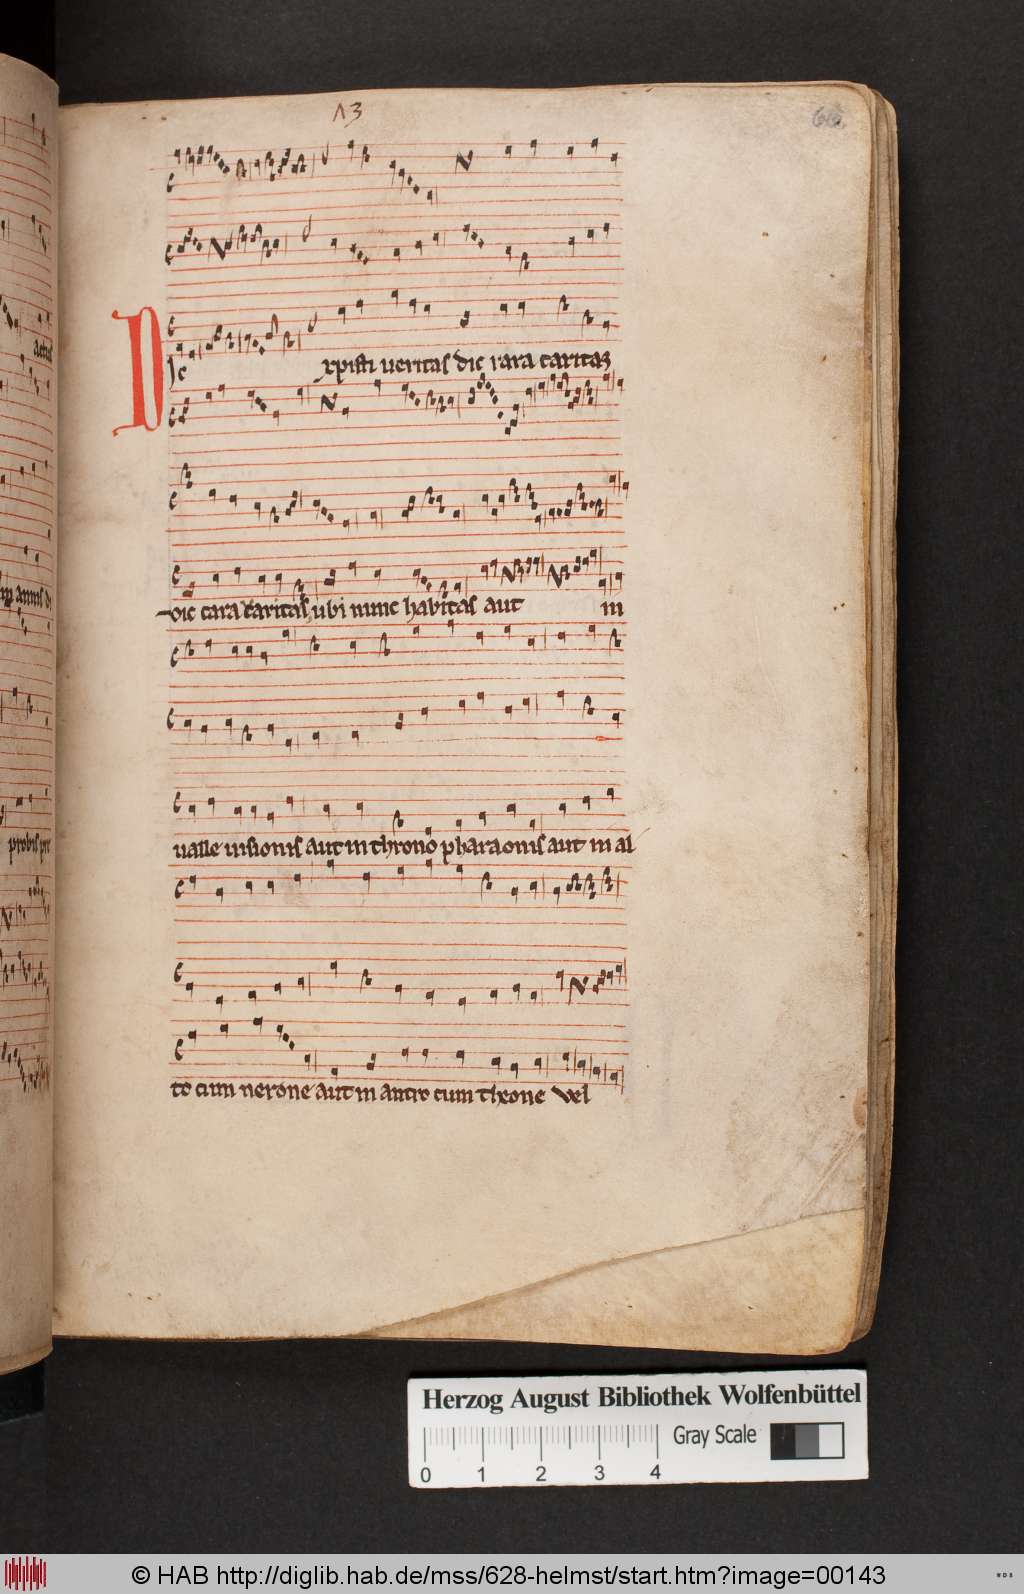 13
Dic xpisti ueritas dic rara caritas
dic cara caritas ubi nunc habitas aut in
ualle uisionis aut in throno pharaonis aut in al
to cum nerone aut in antro cum theone vel
actus
annis
probis
Herzog August Bibliothek Wolfenbüttel
Gray Scale
0 1 2 3 4
© HAB http://diglib.hab.de/mss/628-helmst/start.htm?image=00143